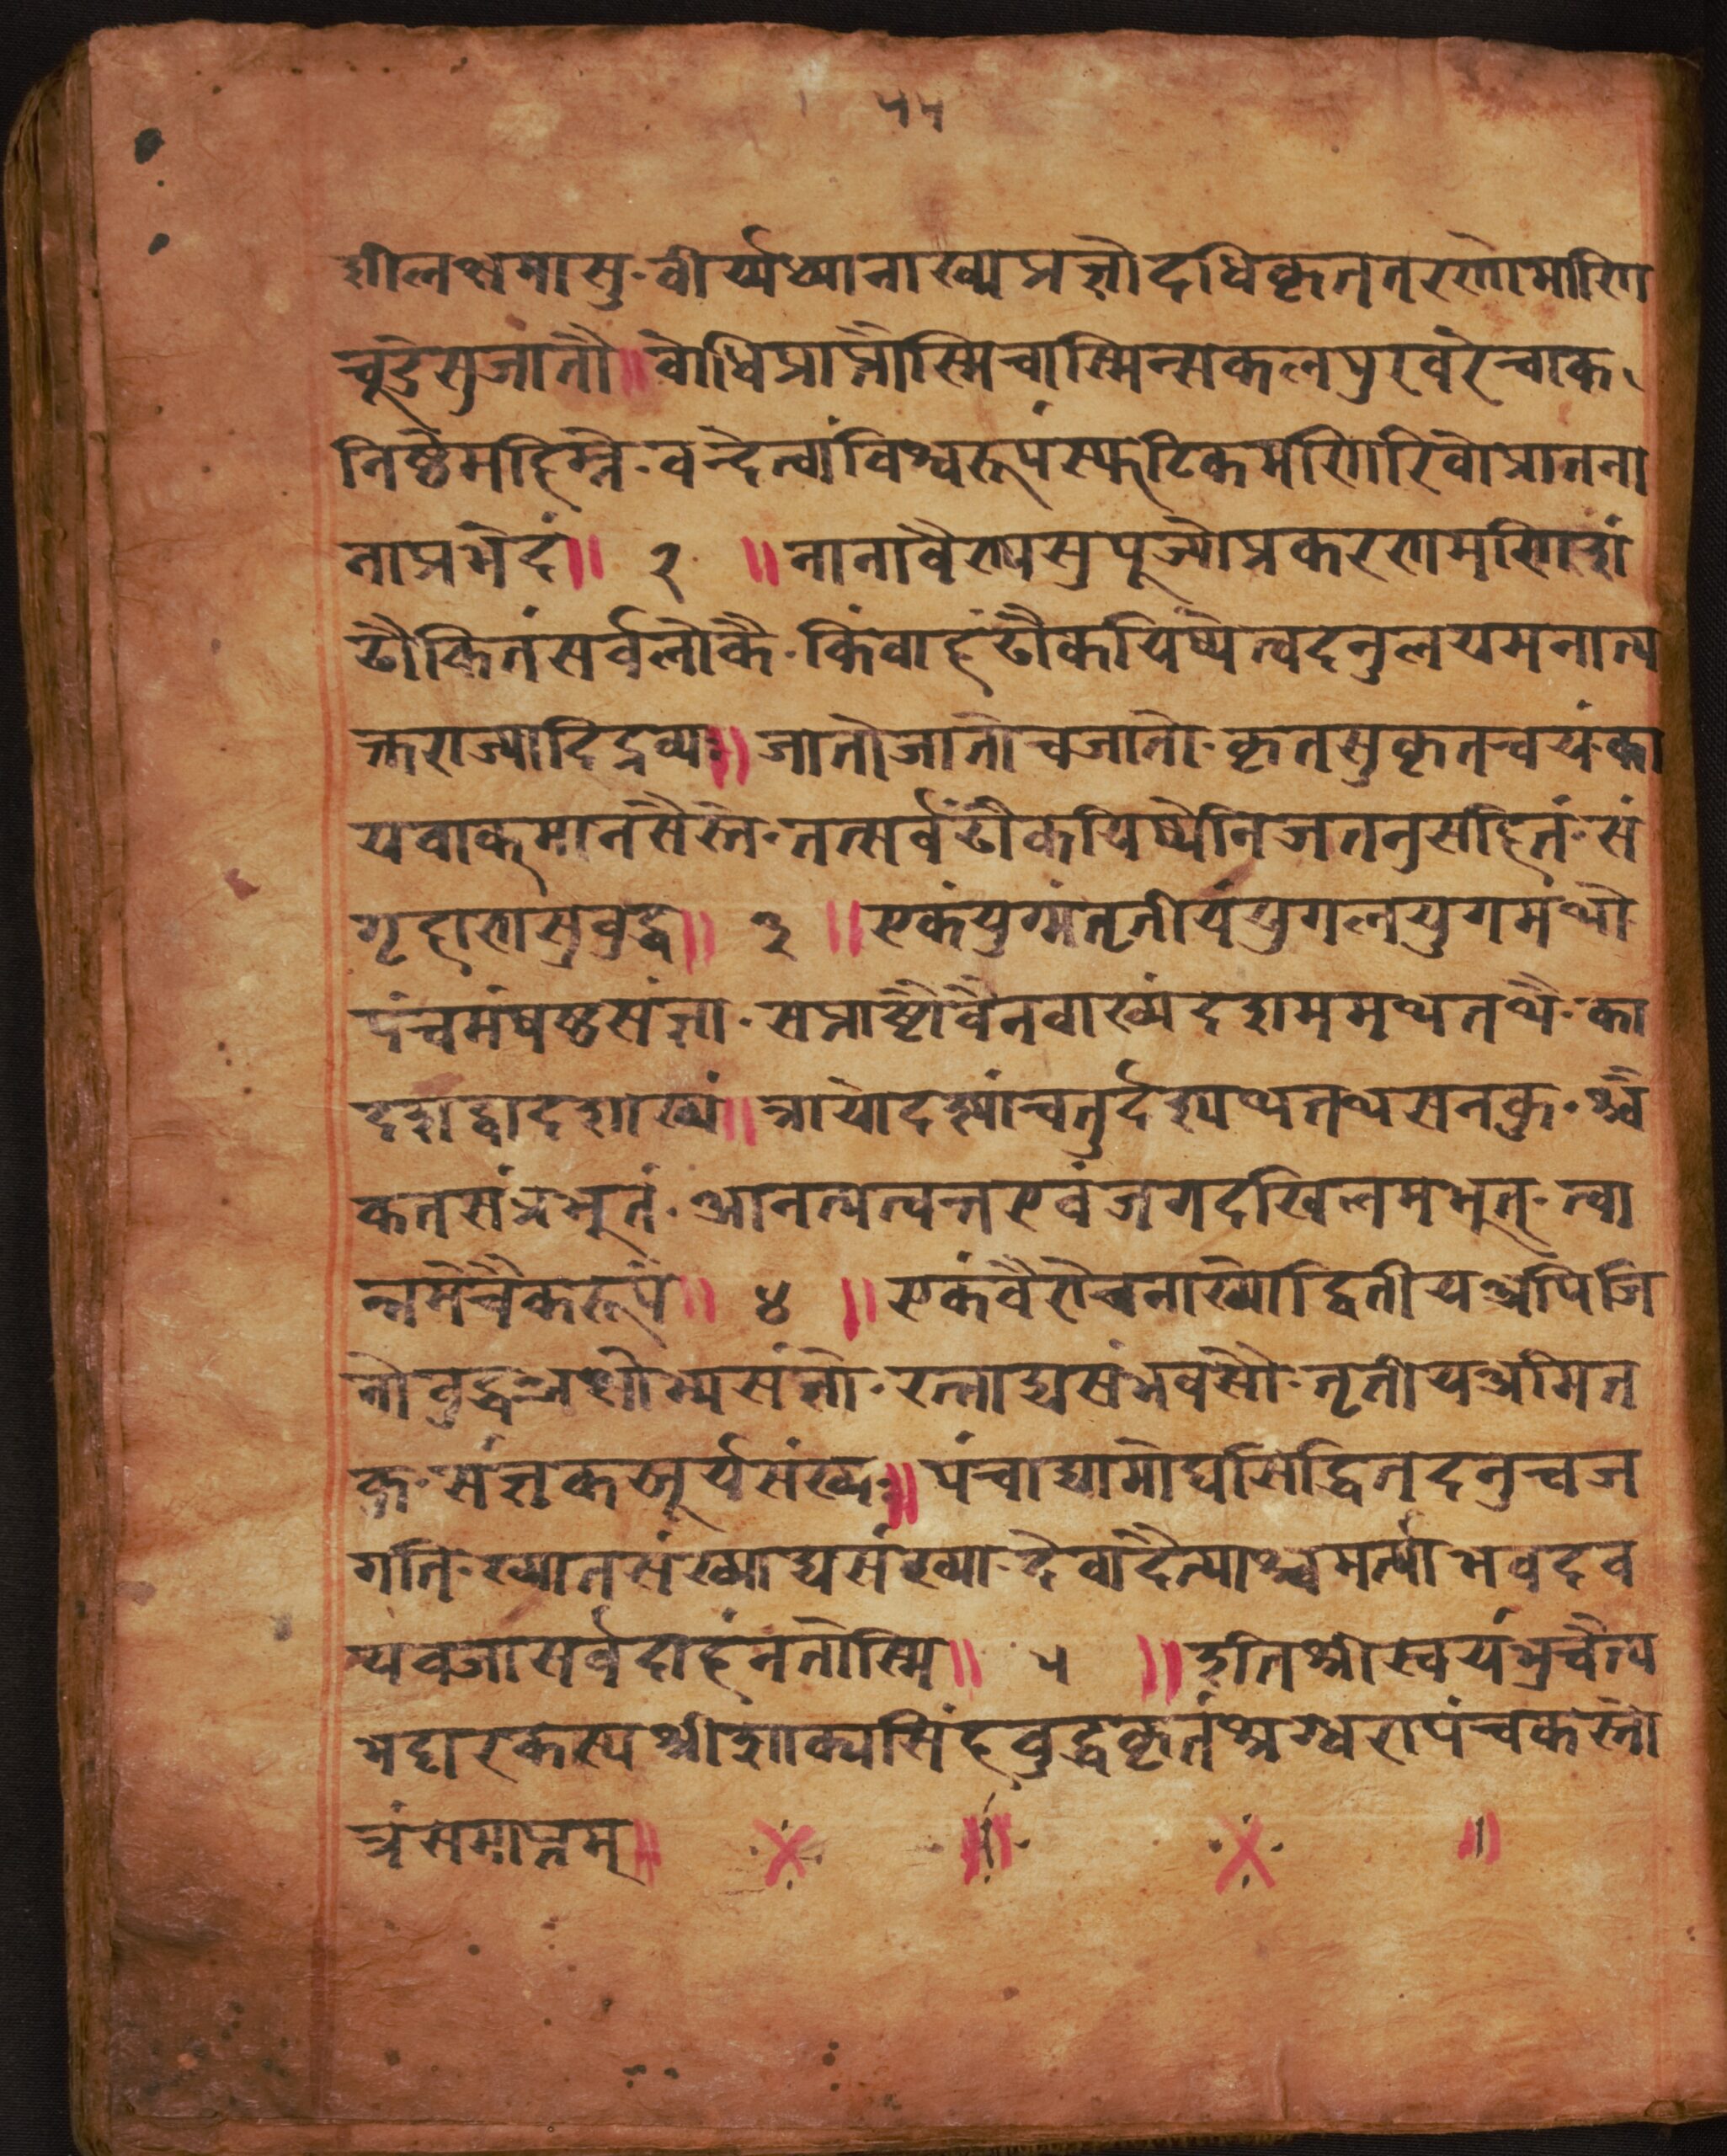 ५५
शीलक्षमासु·वीर्य्यध्यानाख्यप्रज्ञोदधिकृततरणोमारिग
चूद्रेसुजातौ॥वोधिप्राप्तोस्मिचास्मिन्सकलपुरवरेचाक
निष्ठेमहिम्ने·वन्देत्वांविश्वरूपंस्फटिकमणिरिवोप्रातना
नाप्रभेदं॥ २ ॥नानावैरुप्यसुपूज्योप्रकरणमणिशं
ढौकितंसर्वलोकै·किंवाहंढौकयिष्येत्वदनुलयमनात्य
क्तराज्यादिद्रव्यः॥जातोजातोचजातो·कृतसुकृतचयं·का
यवाक्मानसैस्ते·तत्सर्वंढौकयिष्येनिजतनुसहितं·सं
गृहाणसुवुद्ध॥ ३ ॥एकंयुग्मंतृतीयंयुगलयुगमथो
पंचमंषष्ठसंज्ञा·सप्ताष्टौवैनवाख्यंदशममथतथै·का
दशद्वादशाख्यं॥त्रायोदश्यांचतुर्दश्यथतथसनकु·श्चै
कतसंप्रभूतं·आनत्यत्वन्तएवंजगदखिलमभूत्·त्वा
न्नमेचैकरूपं॥ ४ ॥एकंवैरोचनाख्योद्वितीयअपिजि
नोवुद्धअक्षोभ्यसंज्ञो·रत्नाद्यसंभवसौ·तृतीयअमित
क·संज्ञकअूर्यसंख्यः॥पंचाद्यामोघसिद्धितदनुचज
गति·ख्यातसंख्याद्यसंख्या·देवादैत्याश्चमर्त्याभवदव
यवजासर्वदाहंनतोस्मि॥ ५ ॥इतिश्रीस्वयंभुचैत्य
भट्टारकस्यश्रीशाक्यसिंहवुद्धकृतंस्रग्धरापंचकस्तो
त्रंसमाप्तम्॥ ॥ ॥